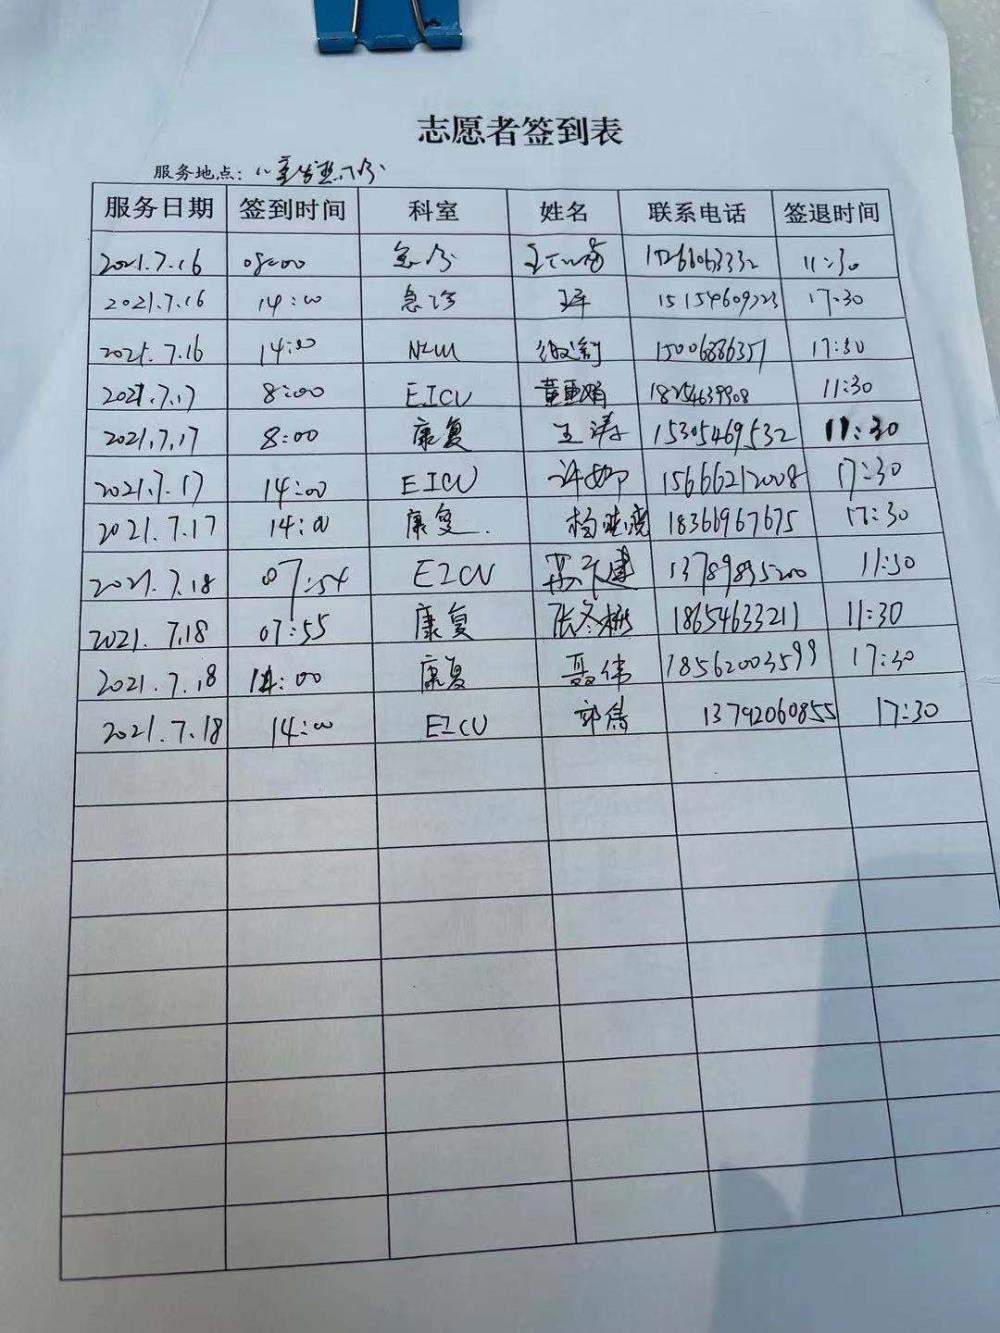 志愿者签到表
服务地点：
服务日期 签到时间 科室 姓名 联系电话 签退时间
2021.7.16 08:00 急诊 11:30
2021.7.16 14:00 急诊 17:30
2021.7.16 14:00 15006886357 17:30
2021.7.17 8:00 EICU 董亚娟 18254639908 11:30
2021.7.17 8:00 康复 王涛 15305469532 11:30
2021.7.17 14:00 EICU 许娜 15666212008 17:30
2021.7.17 14:00 康复. 杨晓 18366967675 17:30
2021.7.18 07:54 EICU 13789895200 11:30
2021.7.18 07:55 康复 张冬梅 18654633211 11:30
2021.7.18 14:00 康复 聂伟 18562003599 17:30
2021.7.18 14:00 EICU 郭倩 13792060855 17:30